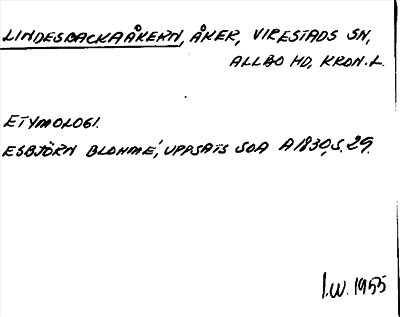 LINDESBACKAÅKERN, ÅKER, VIRESTADS SN,
ALLBO HD, KRON.L.
ETYMOLOGI.
ESBJÖRN BLOHMÉ, UPPSATS SOA A1830,S.29.
I.W. 1955